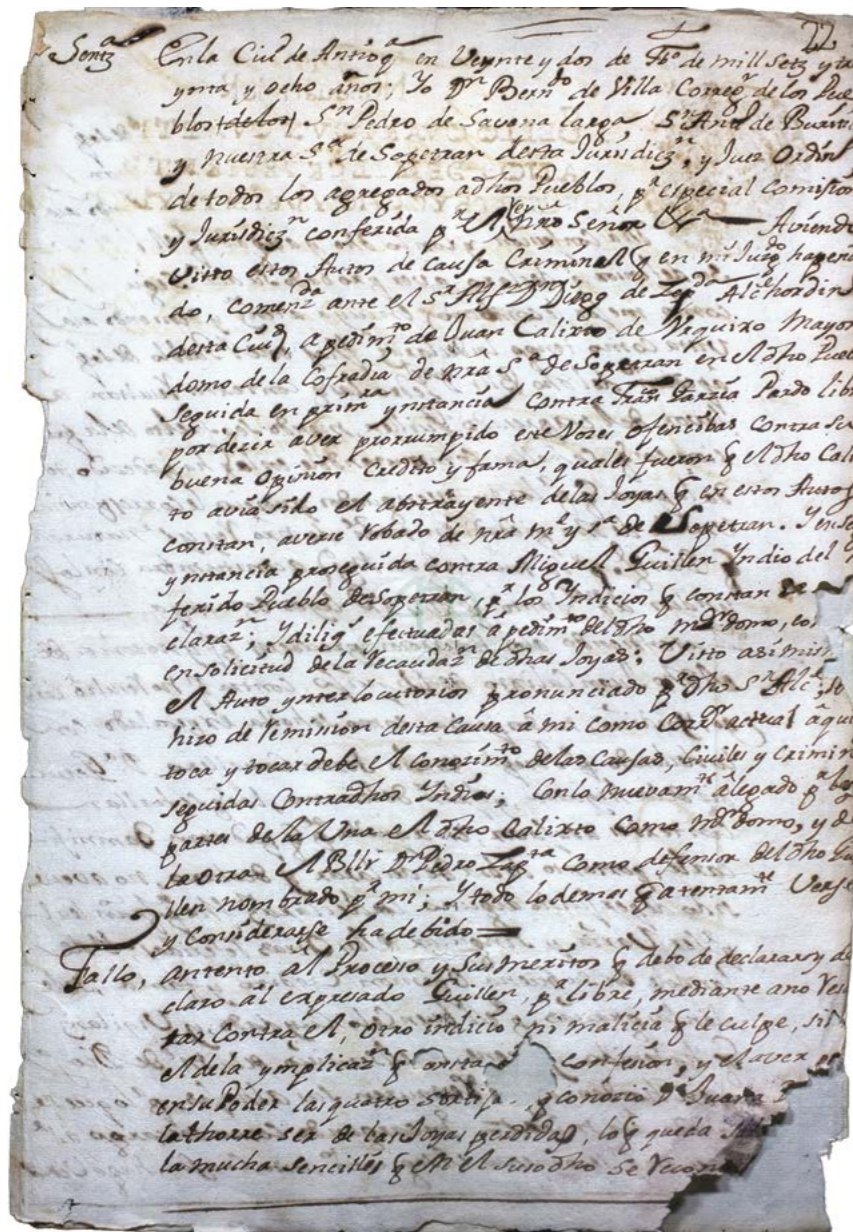 22
Sentª En la Ciuᵈ de Antioqª en Veynte y dos de Fbº de mill setzˢ y tre
ynta y ocho años; Yo Dⁿ Bernᵈᵒ de Villa Corregʳ de los Pue
blos de los Sⁿ Pedro de Savana larga Sⁿ Antº de Buriti
y nuestra Sª de Sopetran desta Jurisdizⁿ, y Juez Ordinº
de todos los agregados a dhos Pueblos, pʳ especial Comision
y Jurisdizⁿ conferida pʳ el Rey nro Señor Aviendo
Visto estos Autos de causa Criminal q en mi Juzgᵈᵒ ha pen
do, comenzᵈᵃ ante el Sʳ Alfz Dⁿ Diego de Zapᵗᵃ Alcᵈᵉ hordin
desta Ciuᵈ, a pedimᵗᵒ de Juan Calixto de Mayor
domo de la Cofradia de nrâ Sª de Sopetran en el dho Pueb
seguida en primʳᵃ ynstancia contra Franᶜᵒ Garzia Pardo libre
por dezir aver prorrumpido este Vozes ofencibas contra su
buena Opinion Credito y fama, quales fueron q el dho Calix
to avia sido el abstrayente de las Joyas q en estos Autos
constan, averse Robado de nrâ mᵉ y Sª de Sopetran. Y en se
ynstancia proseguida contra Miguel Guillen Yndio del
ferido Pueblo de Sopetran, pʳ los Yndicios q constan
clarazⁿ; Y diligˢ efectuadas â pedimᵗᵒ del dho mʳdomo,
en solicitud de la Recaudazⁿ de dhas Joyas; Visto asimis
el Auto ynterlocutorios pronunciado pʳ dho Sʳ Alcᵉ, se
hizo de Remision desta Causa â mi como Corrᵒʳ actual â quie
toca y tocar debe el conozimᵗᵒ de las Causas, Ciuiles y Crimin
seguidas Contra dhos Yndios; Con lo nuevamᵗᵉ âlegado pʳ las
partes de la Una el dho Calixto como mʳdomo, y de
la otra el Bllr Dⁿ Pedro Zapᵗᵃ como defensor del dho Gui
llen nombrado pʳ mi; Y todo lo demas q atentamᵗᵉ Verse
y Considerarse ha debido=
Fallo, antento âl Processo y Sus meritos q debo de declarar y de
claro âl expresado Guillen, pʳ libre, mediante a no Resul
tar Contra el, otro indicio ni malicia q le culpe, si
el de la ymplicazⁿ q consta confesion, y el aver
en su Poder las quatro sortijas, q conozio Dª Juana
lathorre ser de las Joyas perdidas, lo q queda
la mucha sencilles q en el suso dho se Recono